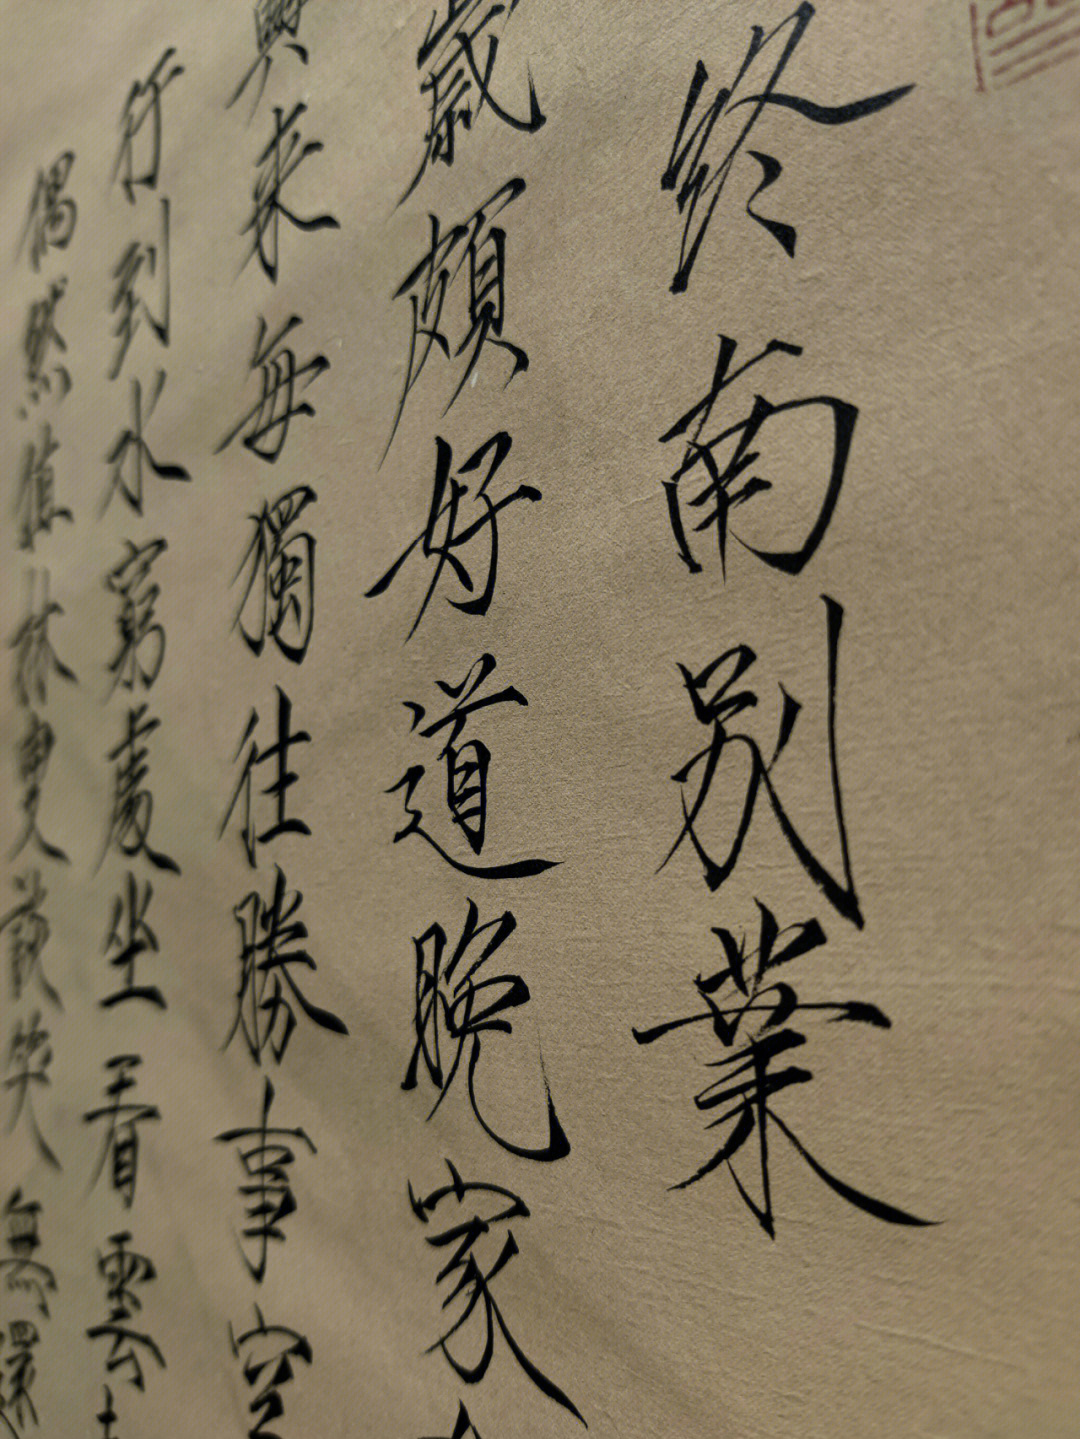 終南別業
歲頗好道晚家
興來每獨往勝事空
行到水窮處坐看雲
偶然值林叟談笑無還